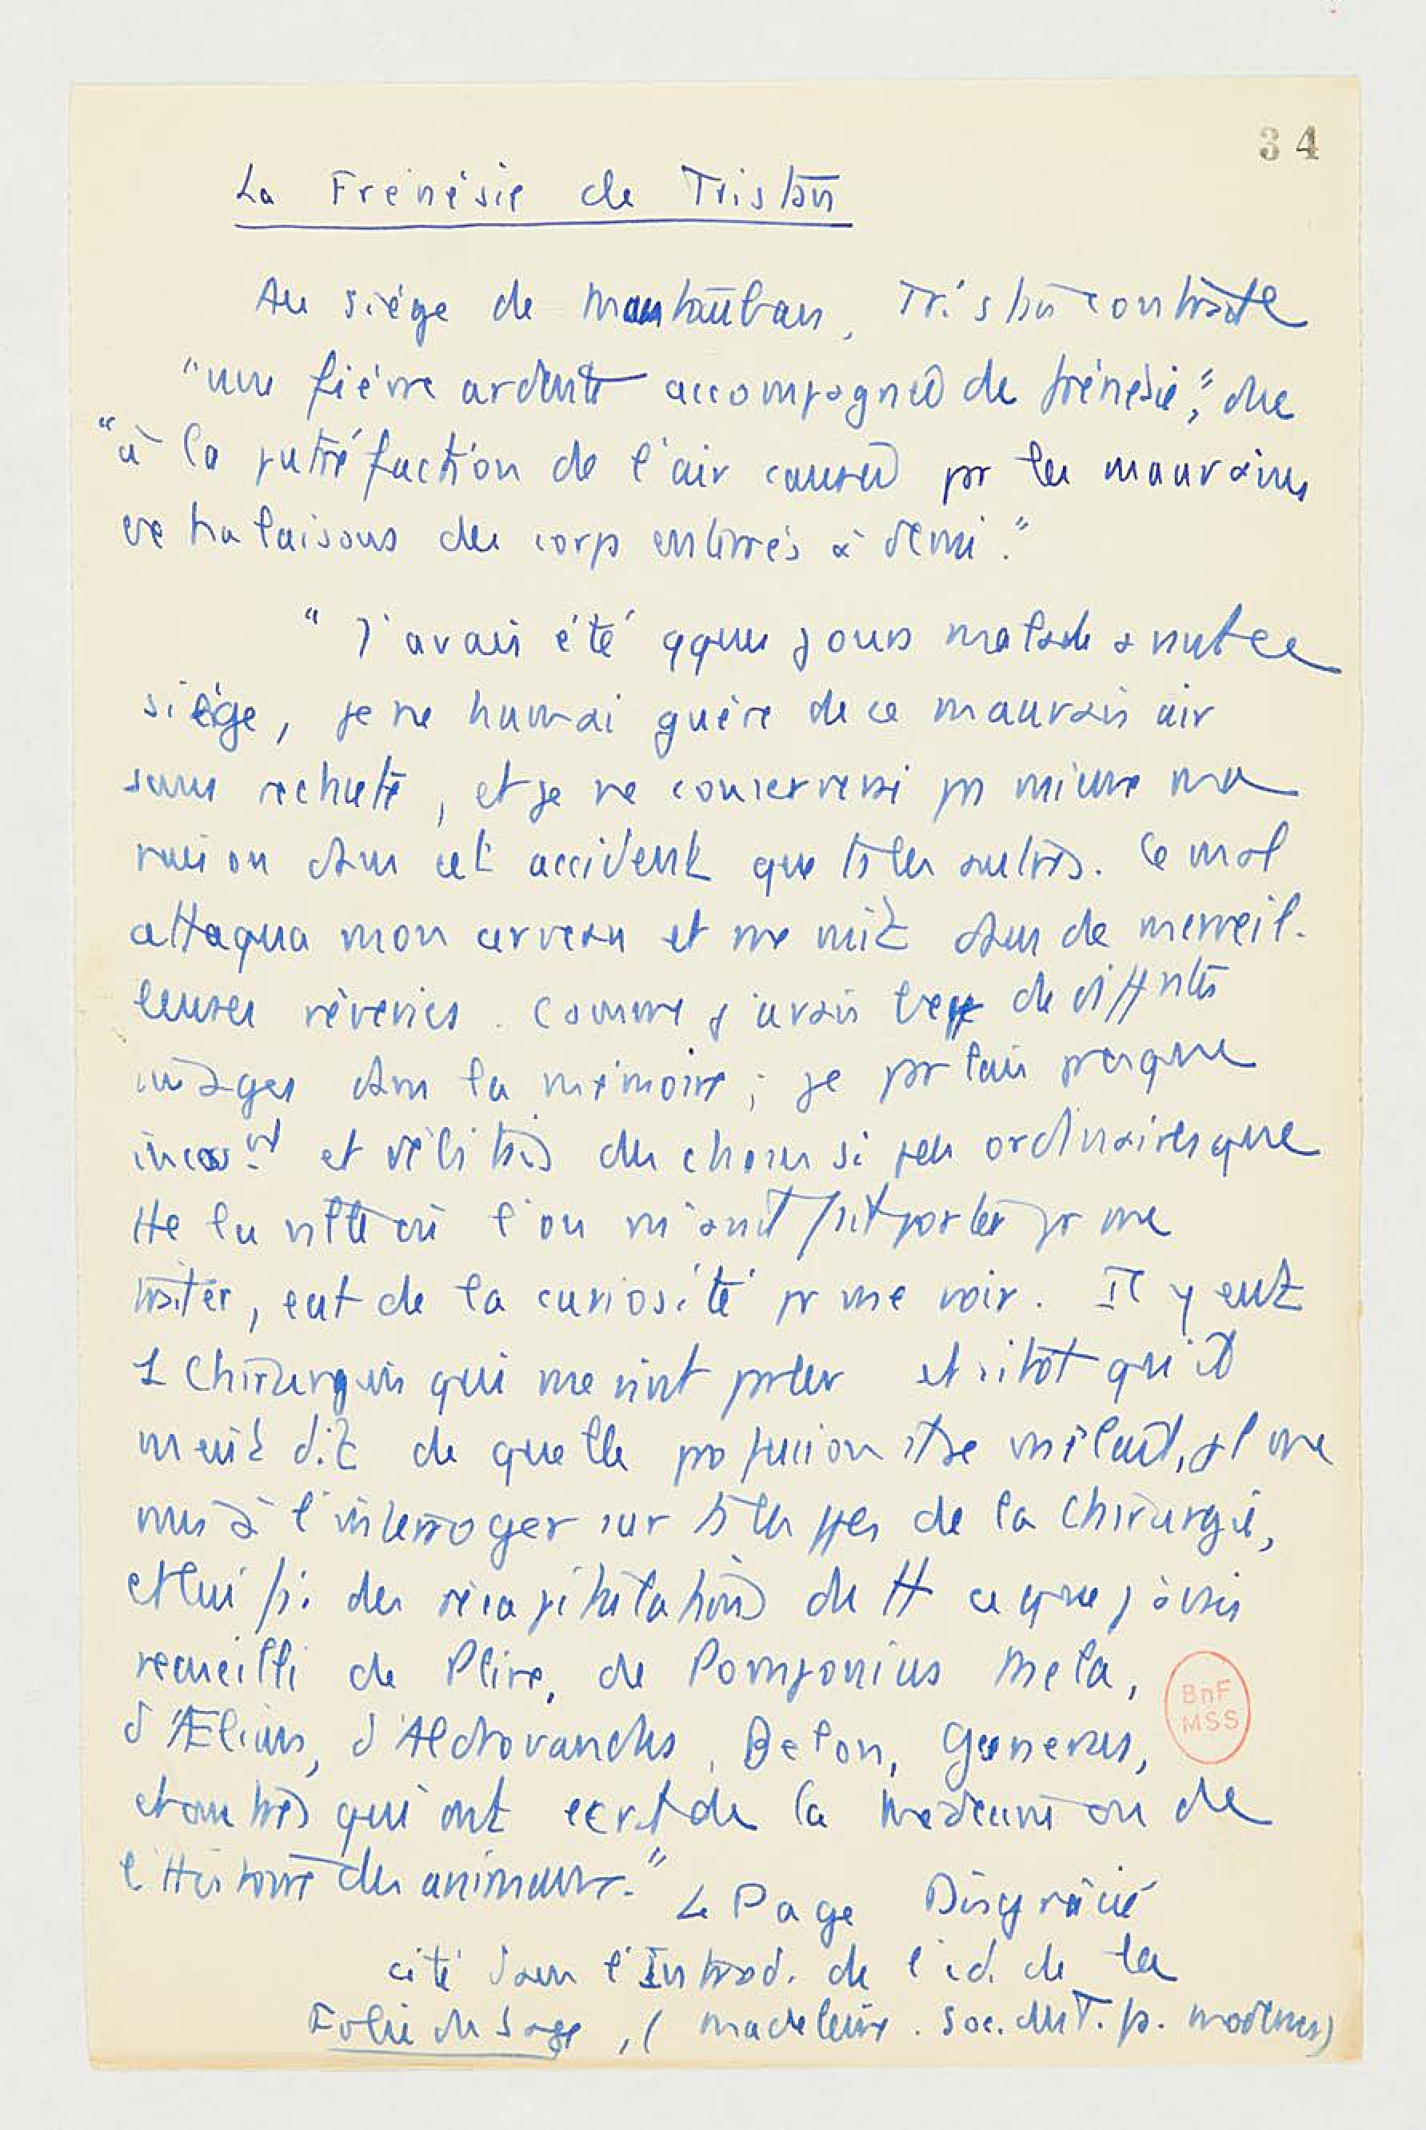 34
La Frénésie de Tristan
Au siège de Montauban, Tristan contracte
"une fièvre ardente accompagnée de frénésie," due
"à la putréfaction de l'air causée pr les mauvaises
exhalaisons des corps enterrés à demi."
"J'avais été qques jours malade avant ce
siège, je ne humai guère de ce mauvais air
sans rechute, et je ne conservai pas mieux ma
raison dans cet accident que ts les autres. Ce mal
attaqua mon cerveau et me mit dans de merveil-
leuses rêveries. Comme j'avais de diffntes
images dans la mémoire ; je parlais presque
et débitais des choses si peu ordinaires que
tte la ville où l'on m'avait fait porter pr me
traiter, eut de la curiosité pr me voir. Il y eut
1 Chirurgien qui me vint parler et sitôt qu'il
m'eut dit de quelle profession il se mêlait, je me
mis à l'interroger sur ttes les pties de la Chirurgie,
et lui fis des récapitulations de tt ce que j'avais
recueilli de Pline, de Pomponius Mela,
d'Ælian, d'Aldrovandus, Belon, Gesnerus,
et autres qui ont écrit de la Médecine ou de
l'Histoire des animaux."
Le Page Disgrâcié
cité dans l'Introd. de l'éd. de la
Folie du Sage, (Madeleine. Soc. des T. fs. modernes)
BnF
MSS